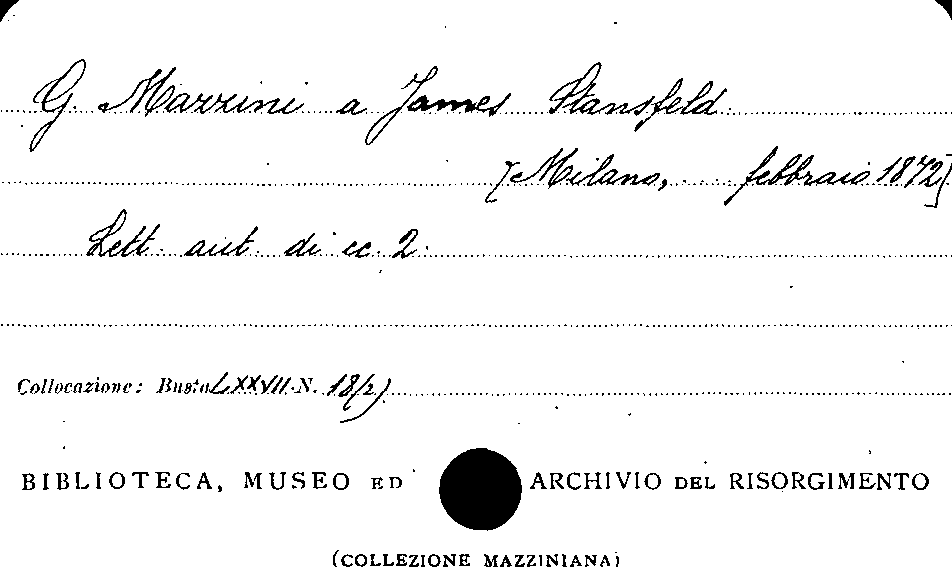 G. Mazzini a James Stansfeld
[Milano, ... febbraio 1872]
Lett. aut. di cc. 2.
Collocazione: Busta LXXVII N. 18(2)
BIBLIOTECA, MUSEO ED ARCHIVIO DEL RISORGIMENTO
(COLLEZIONE MAZZINIANA)